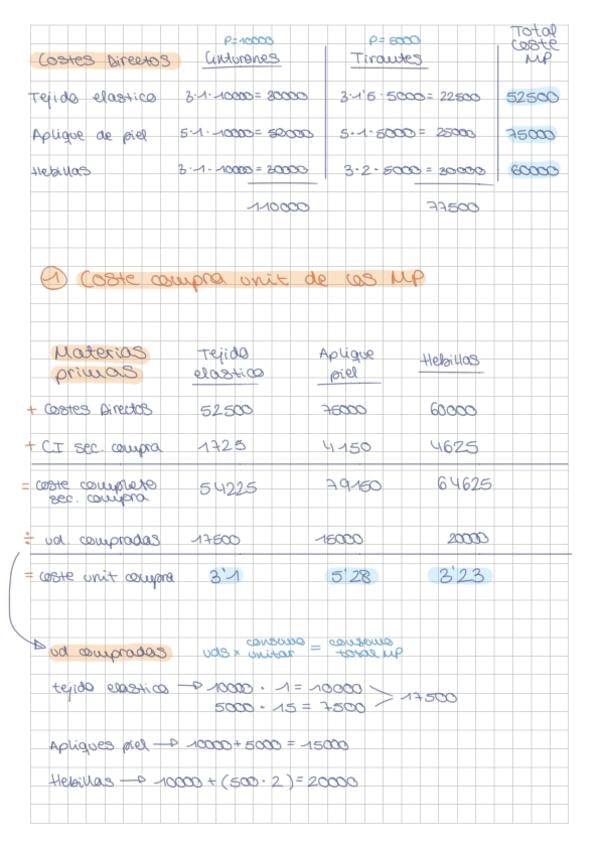 P=10000 P=5000 Total coste MP
Costes Directos Cinturones Tirantes
Tejido elastico 3·1·10000= 30000 3·1'5·5000= 22500 52500
Aplique de piel 5·1·10000= 50000 5·1·5000= 25000 75000
Hebillas 3·1·10000= 30000 3·2·5000= 30000 60000
110000 77500
1 Coste compra unit de las MP
Materias primas Tejido elastico Aplique piel Hebillas
+ Costes Directos 52500 75000 60000
+ CI sec. compra 1725 4150 4625
= coste completo sec. compra 54225 79150 64625
÷ ud. compradas 17500 15000 20000
= coste unit compra 3'1 5'28 3'23
ud compradas uds × consumo unitar = consumo total MP
tejido elastico → 10000 · 1 = 10000
5000 · 15 = 7500 > 17500
Apliques piel → 10000+5000 = 15000
Hebillas → 10000 + (500·2) = 20000